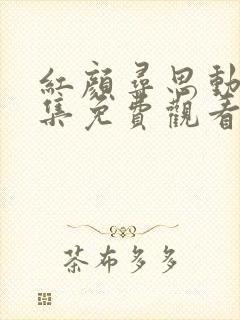 紅顏尋恩動
集免費觀看
茶布多多